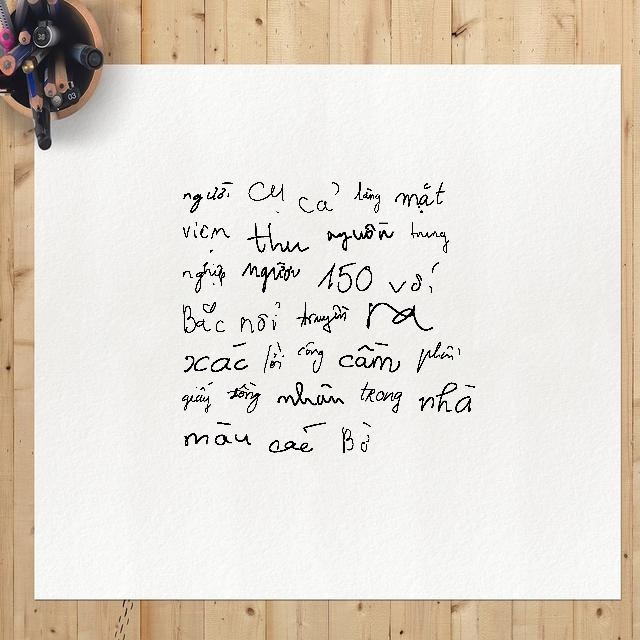 người Cụ Cả lăng mặt
viên thu nguồn trung
nghiệp người 150 với
Bắc nổi truyền ra
xác lời công cầm phải
giấy tồng nhân trong nhà
màu các Bờ